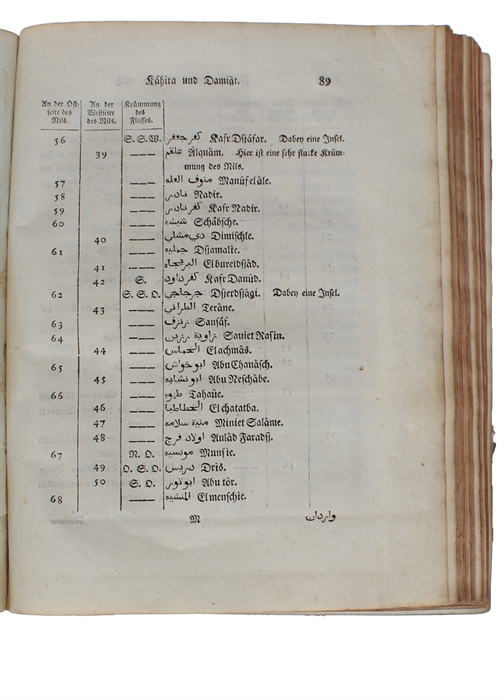 Káhira und Damiât. 89
An der Ost-
seite des
Nils.
An der
Westseite
des Nils.
Krümmung
des
Flusses.
56 S. S. W. كفر جعفر Kafr Dsjáfar. Dabey eine Insel.
39 —— علقم Álquâm. Hier ist eine sehr starke Krüm-
mung des Nils.
57 —— منوف العله Manûf elále.
58 —— نادر Nadir.
59 —— كفر نادر Kafr Nadir.
60 —— شبشه Schâbsche.
40 —— دي مشلي Dimischle.
61 —— جمليه Dsjamalie.
41 —— البريجاد Elbureidsjâd.
42 S. كفر داود Kafr Daûd.
62 S. S. O. جرجاجي Dsjerdsjági. Dabey eine Insel.
43 —— الطراني Terâne.
63 —— Sansâf.
64 —— زاوية رزين Sauiet Rasin.
44 —— الخماس Elachmâs.
65 —— ابو خواش Abu Chanâsch.
45 —— ابو نشابه Abu Neschâbe.
66 —— طهوه Tahaûe.
46 —— الخطاطبا Elchatatba.
47 —— منية سلامه Miniet Salâme.
48 —— اولاد فرج Aulâd Faradsj.
67 N. O. مونسيه Munsie.
49 O. S. O. دريس Dris.
50 S. O. ابو تور Abu tôr.
68 —— المنشيه Elmenschie.
M واردان